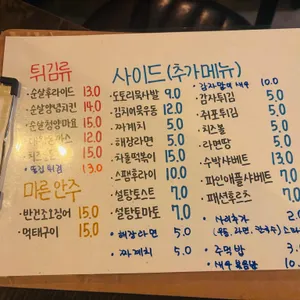 튀김류
·순살후라이드 13.0
·순살양념치킨 14.0
·순살청양마요 15.0
12.0
15.0
13.0
마른안주
·반건조오징어 15.0
·먹태구이 15.0
사이드(추가메뉴)
·도토리묵사발 9.0
·김치어묵우동 12.0
·짜계치 5.0
·해장라면 5.0
·차돌떡볶이 15.0
·스팸후라이 10.0
·설탕토스트 7.0
·설탕토마토 7.0
·해장라면 5.0
·짜계치 5.0
10.0
·감자튀김 5.0
·쥐포튀김 5.0
·치즈볼 5.0
·라면땅 5.0
·수박샤베트 13.0
·파인애플샤베트 7.0
·패션후르츠 7.0
·사리추가
·주먹밥 3.0
볶음밥